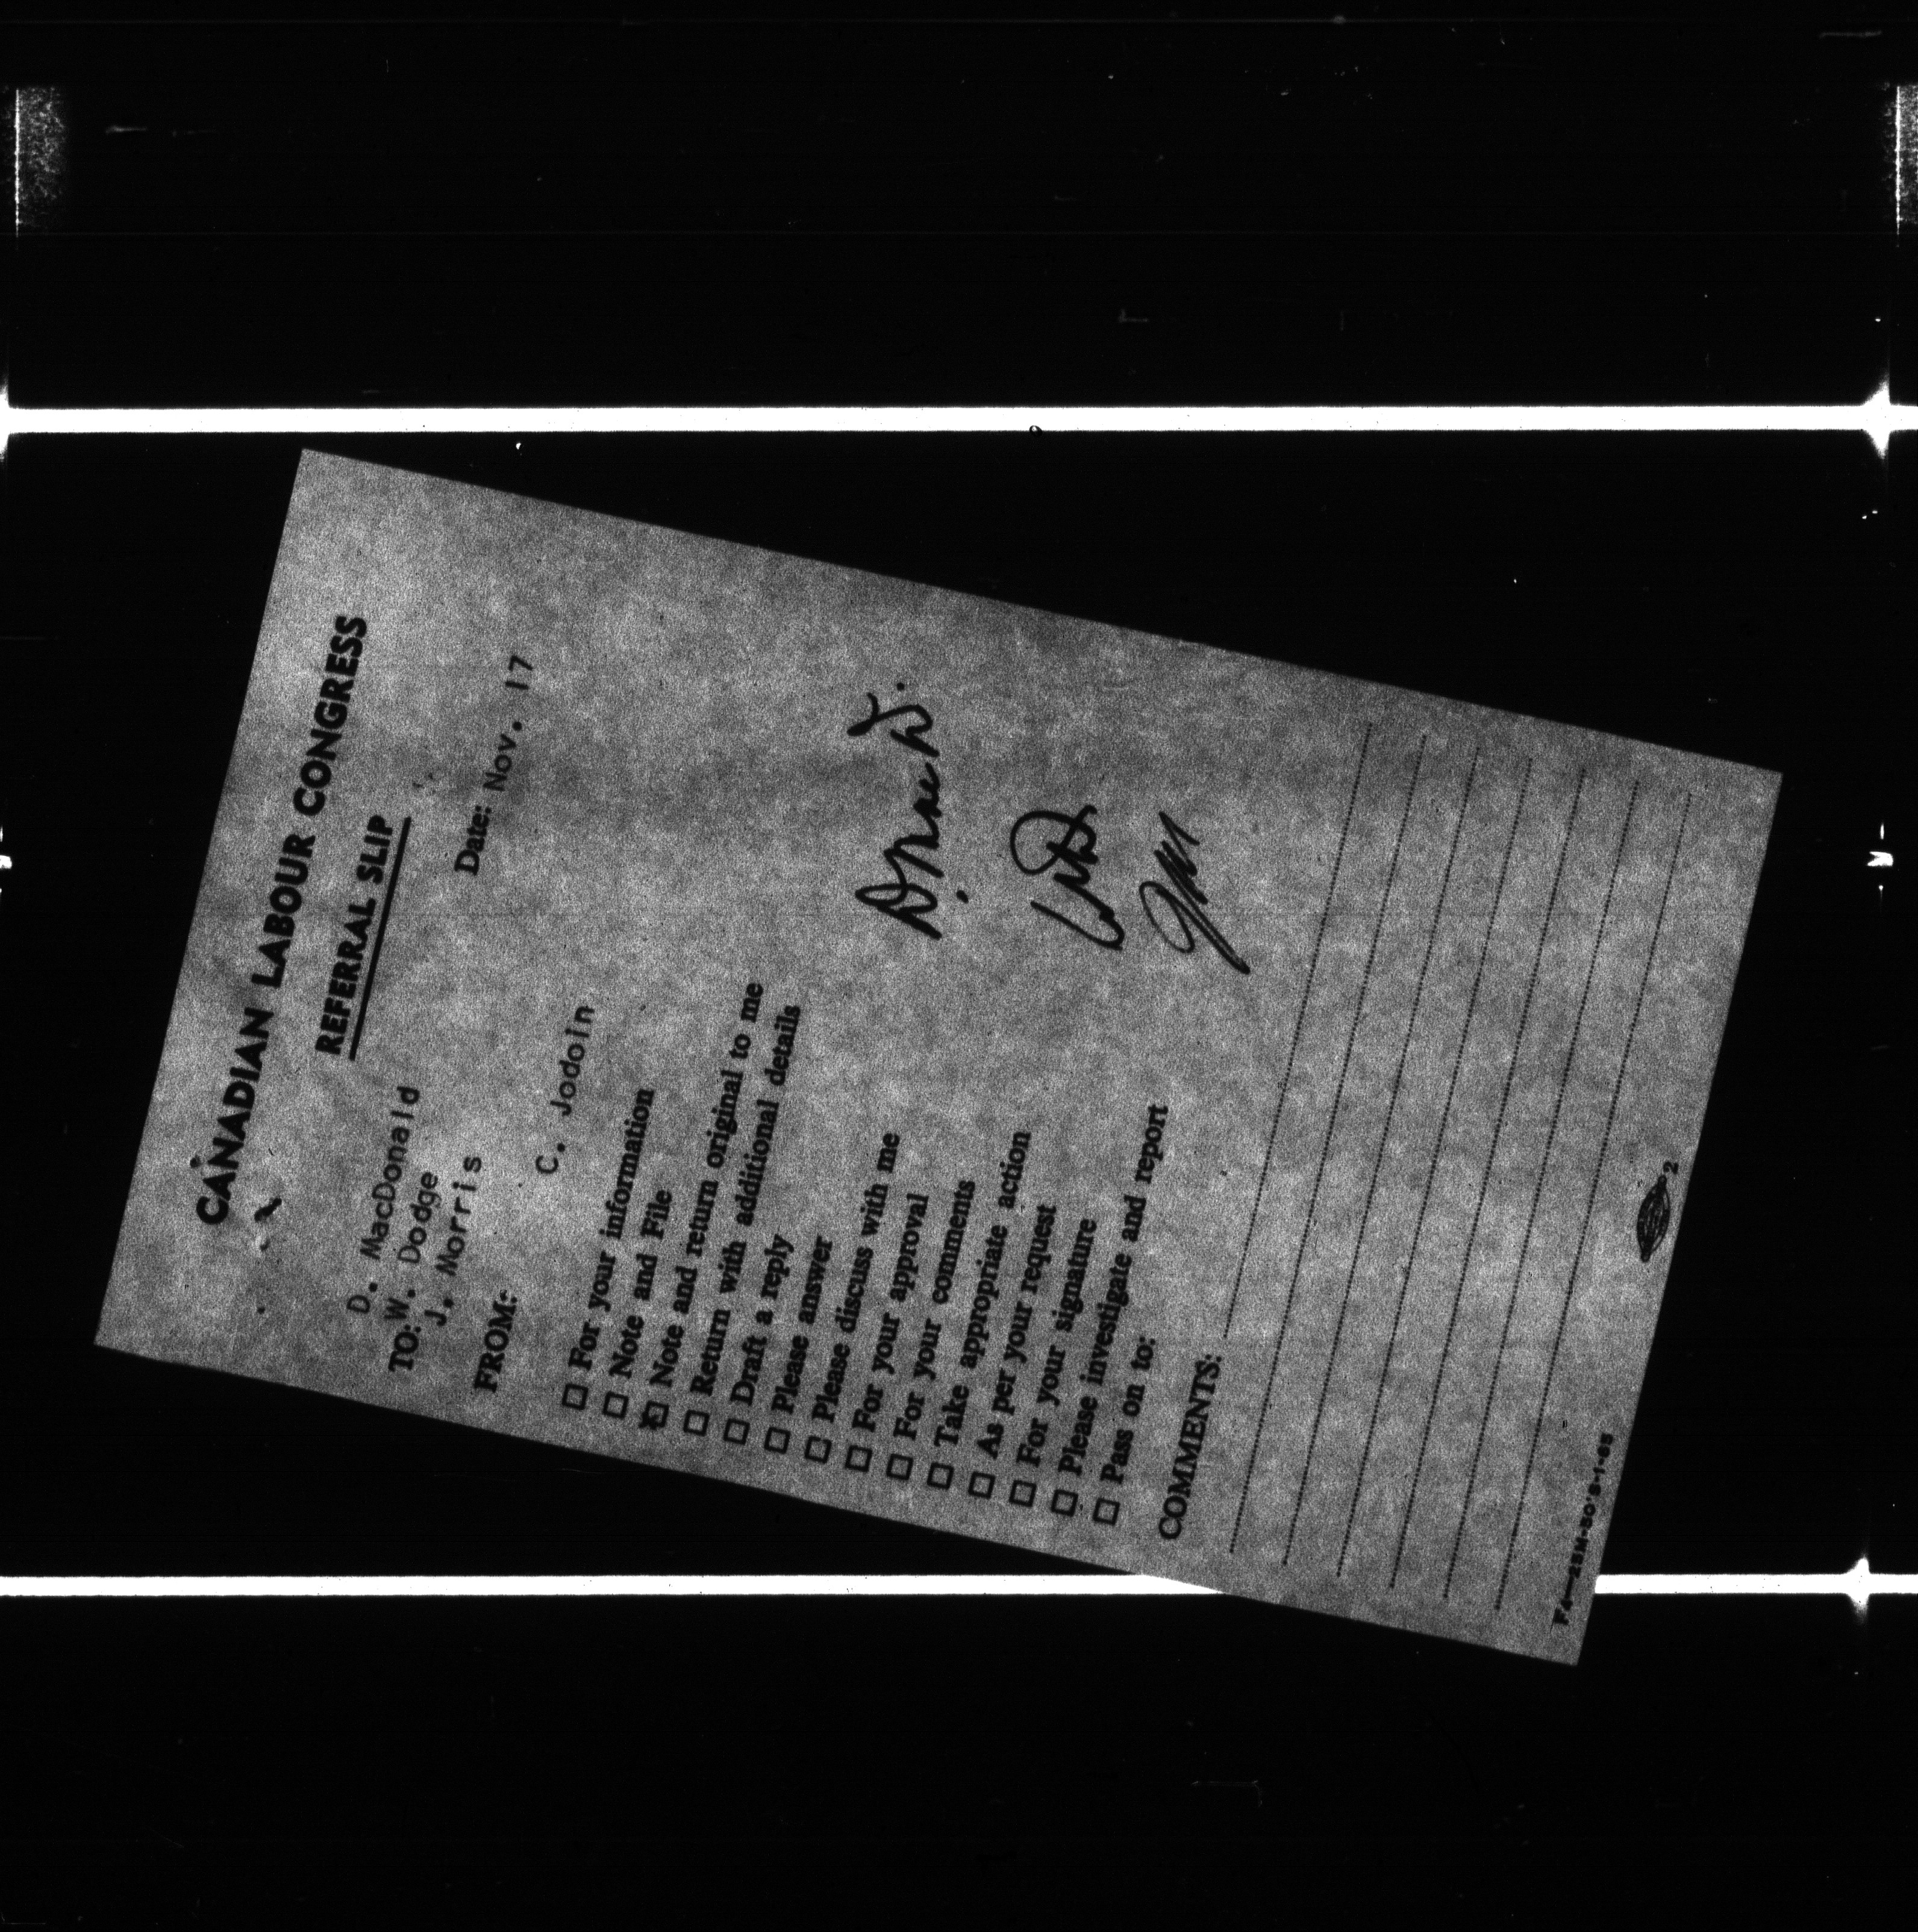 CANADIAN LABOUR CONGRESS
REFERRAL SLIP
Date: Nov. 17
D. MacDonald
TO: W. Dodge
J. Morris
FROM: C. Jodoin
☐ For your information
☐ Note and File
☒ Note and return original to me
☐ Return with additional details
☐ Draft a reply
☐ Please answer
☐ Please discuss with me
☐ For your approval
☐ For your comments
☐ Take appropriate action
☐ As per your request
☐ For your signature
☐ Please investigate and report
☐ Pass on to:
D. MacD.
WD
JM
COMMENTS:
2